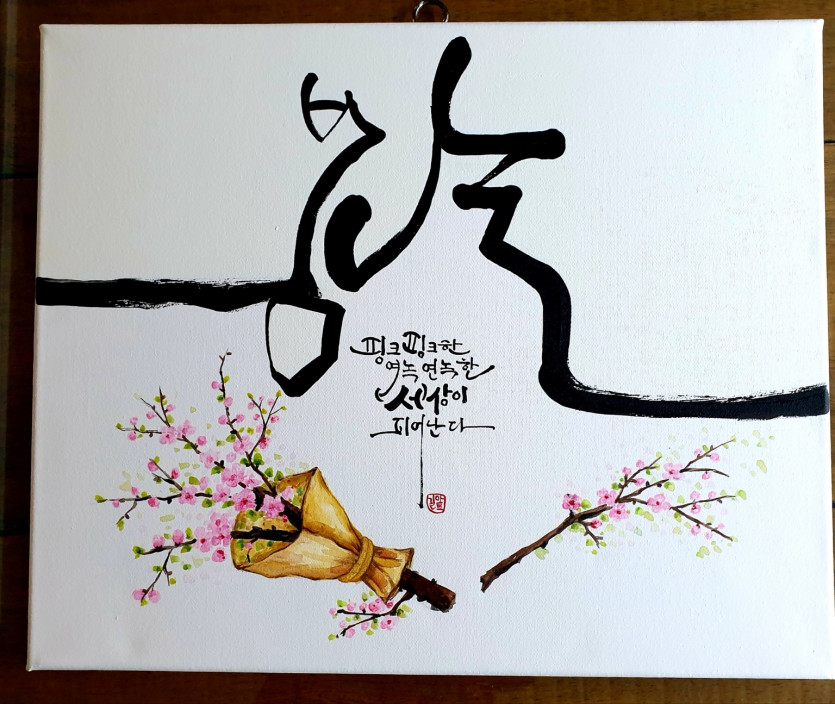 봄날
핑크핑크한
연녹연녹한
세상이
피어난다